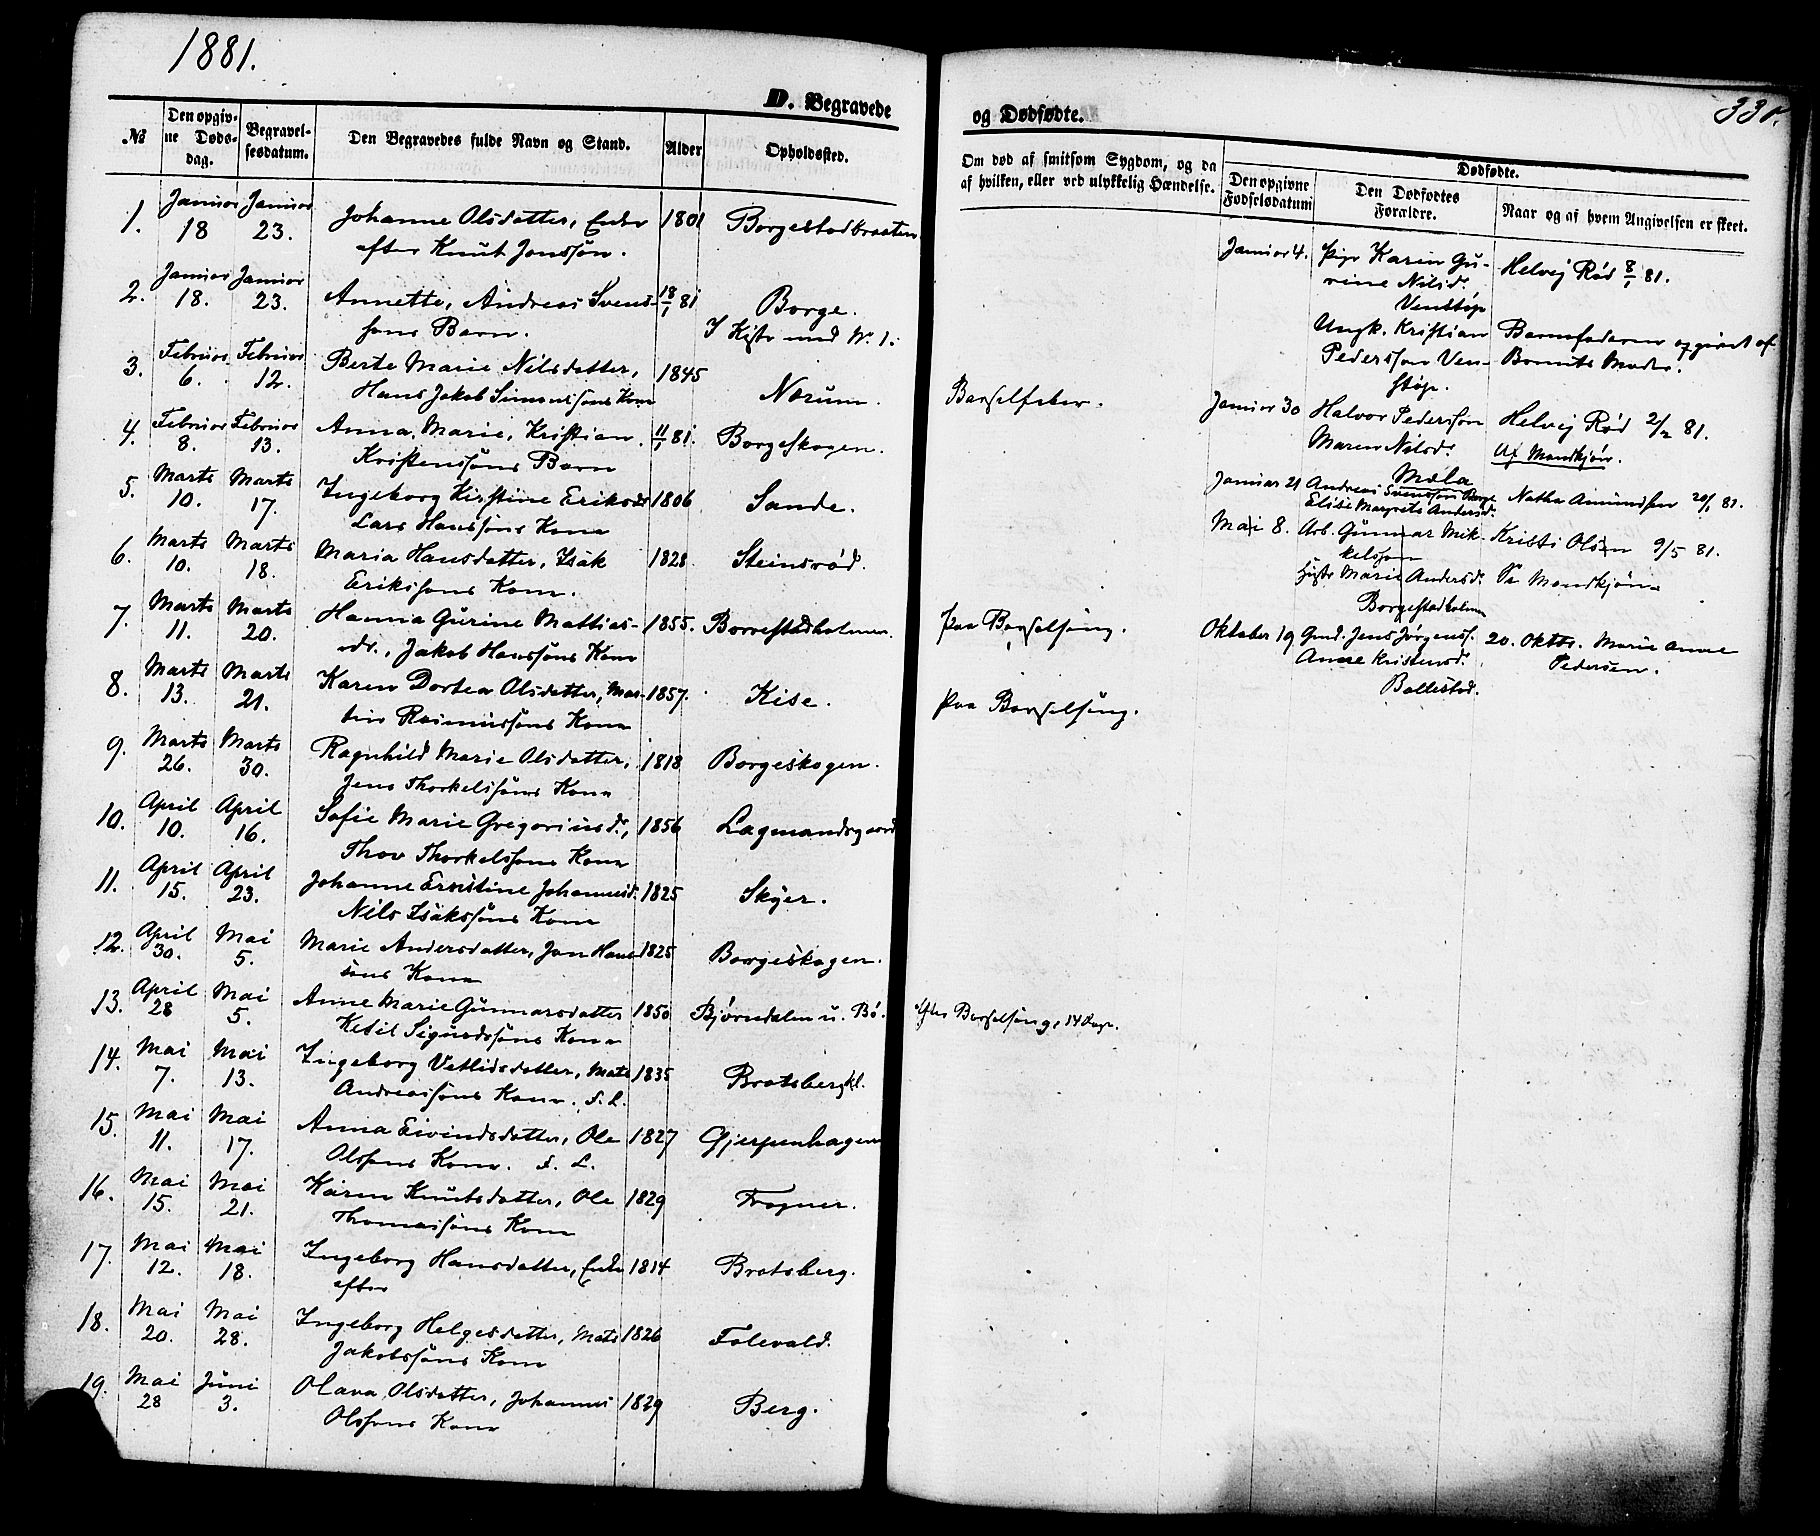 1881.
D. Begravede
No
Den opgivne Dødsdag.
Begravelsesdatum.
Den Begravedes fulde Navn og Stand.
Alder
Opholdssted.
1. Januar 18 Januar 23. Johanne Olsdatter, Enke 1801 Borgestadbraaten
efter Knut Jonssøn.
2. Januar 18. Januar 23. Annette, Andreas Svens- 18/1 81 Borge.
søns Barn. I Kiste med No 1.
3. Februar 6. Februar 12. Berte Marie Nilsdatter, 1845 Nærum.
Hans Jakob Simonssøns Kone
4. Februar 8. Februar 13. Anna Marie, Kristian 11/1 81. Borgeskogen.
Kristenssøns Barn
5. Marts 10. Marts 17. Ingeborg Kirstine Eriksdr 1806 Sande.
Lars Hanssøns Kone
6. Marts 10. Marts 18. Maria Hansdatter, Isak 1828. Steinsrød.
Erikssøns Kone.
7. Marts 11. Marts 20. Hanna Gurine Mattias- 1855. Borrestadholmen.
dr., Jakob Hanssøns Kone
8. Marts 13. Marts 21. Karen Dortea Olsdatter, Mar- 1857. Kise.
tin Rasmussøns Kone
9. Marts 26. Marts 30. Ragnhild Marie Olsdatter, 1818 Borgeskogen.
Jens Thorkelssøns Kone
10. April 10. April 16. Sofie Marie Gregoriusd., 1856 Lagmandsgaard
Thov Thorkelssøns Kone
11. April 15. April 23. Johanne Ernstine Johannesd. 1825 Skyer.
Nils Isakssøns Kone
12. April 30. Mai 5. Marie Andersdatter, Jon Hans- 1825 Borgeskogen.
søns Kone
13. April 28 Mai 5. Anne Marie Gunnarsdatter 1850 Bjørndalen u. Bø.
Ketil Sigurdssøns Kone
14. Mai 7. Mai 13. Ingeborg Vetlidsdatter, Mats 1835 Bratsbergkl.
Andreassøns Kone. f. L.
15. Mai 11. Mai 17. Anna Eivindsdatter, Ole 1827 Gjerpenhagen
Olssøns Kone. f. L.
16. Mai 15. Mai 21. Karen Knutsdatter, Ole 1829 Frogner.
Thomassøns Kone
17. Mai 12. Mai 18. Ingeborg Hansdatter, Enke 1814 Bratsberg.
efter
18. Mai 20. Mai 28. Ingeborg Helgesdatter, Mats 1826 Folevald.
Jakobssøns Kone
19. Mai 28 Juni 3. Olava Olsdatter, Johannes 1829 Berg.
Olssøns Kone
og Dødfødte.
Om død af smitsom Sygdom, og da
af hvilken, eller ved ulykkelig Hændelse.
Dødfødte.
Den opgivne Fødselsdatum
Den Dødfødtes Forældre.
Naar og af hvem Angivelsen er skeet.
Januar 4. Pige Karen Gu- Helvej Rød 8/1 81.
rine Nilsd.
Venstøp
Ungk. Kristian Barnefaderen opgivet af
Pederssøn Ven- Barnets Moder.
støp.
Barselfeber.
Januar 30 Halvor Pederssøn Helvej Rød 2/2 81.
Maren Nilsd. Af Mandkjøn.
Mæla
Januar 21 Andreas Svenssøn Borge Natha Amundsen 20/1 81.
Elise Margrete Andersd.
Mai 8. Arb. Gunnar Mik- Kristi Olsen 9/5 81.
kelssøn
Hustr Marie Andersd. Mandkjøn
Borgestadholmen
paa Barselseng.
Oktober 19 Gmd. Jens Jørgenss. 20. Oktbr. Marie Anne
Anne Kristensd. Pedersen.
Bøllestad.
paa Barselseng.
efter Barselseng, 14 Dage.